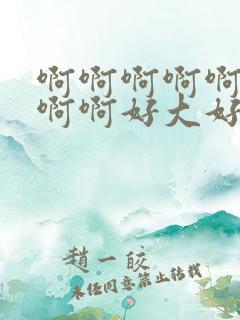 啊啊啊啊啊
啊啊好大好
趙一皎
未经同意禁止转载